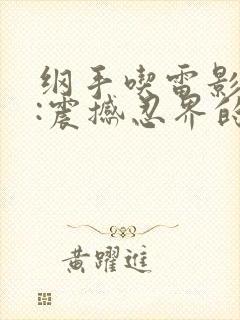 纲手喫雷影
:震撼忍界的
黄躍進